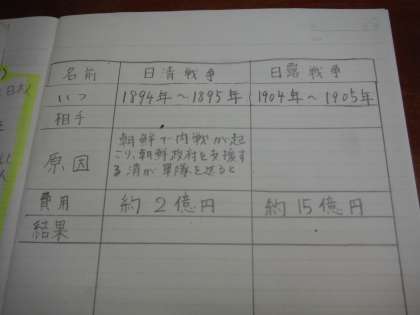 名前 日清戦争 日露戦争
いつ 1894年〜1895年 1904年〜1905年
相手
原因
朝鮮で内戦が起
こり、朝鮮政府を支援す
る清が軍隊を送ると
費用 約2億円 約15億円
結果